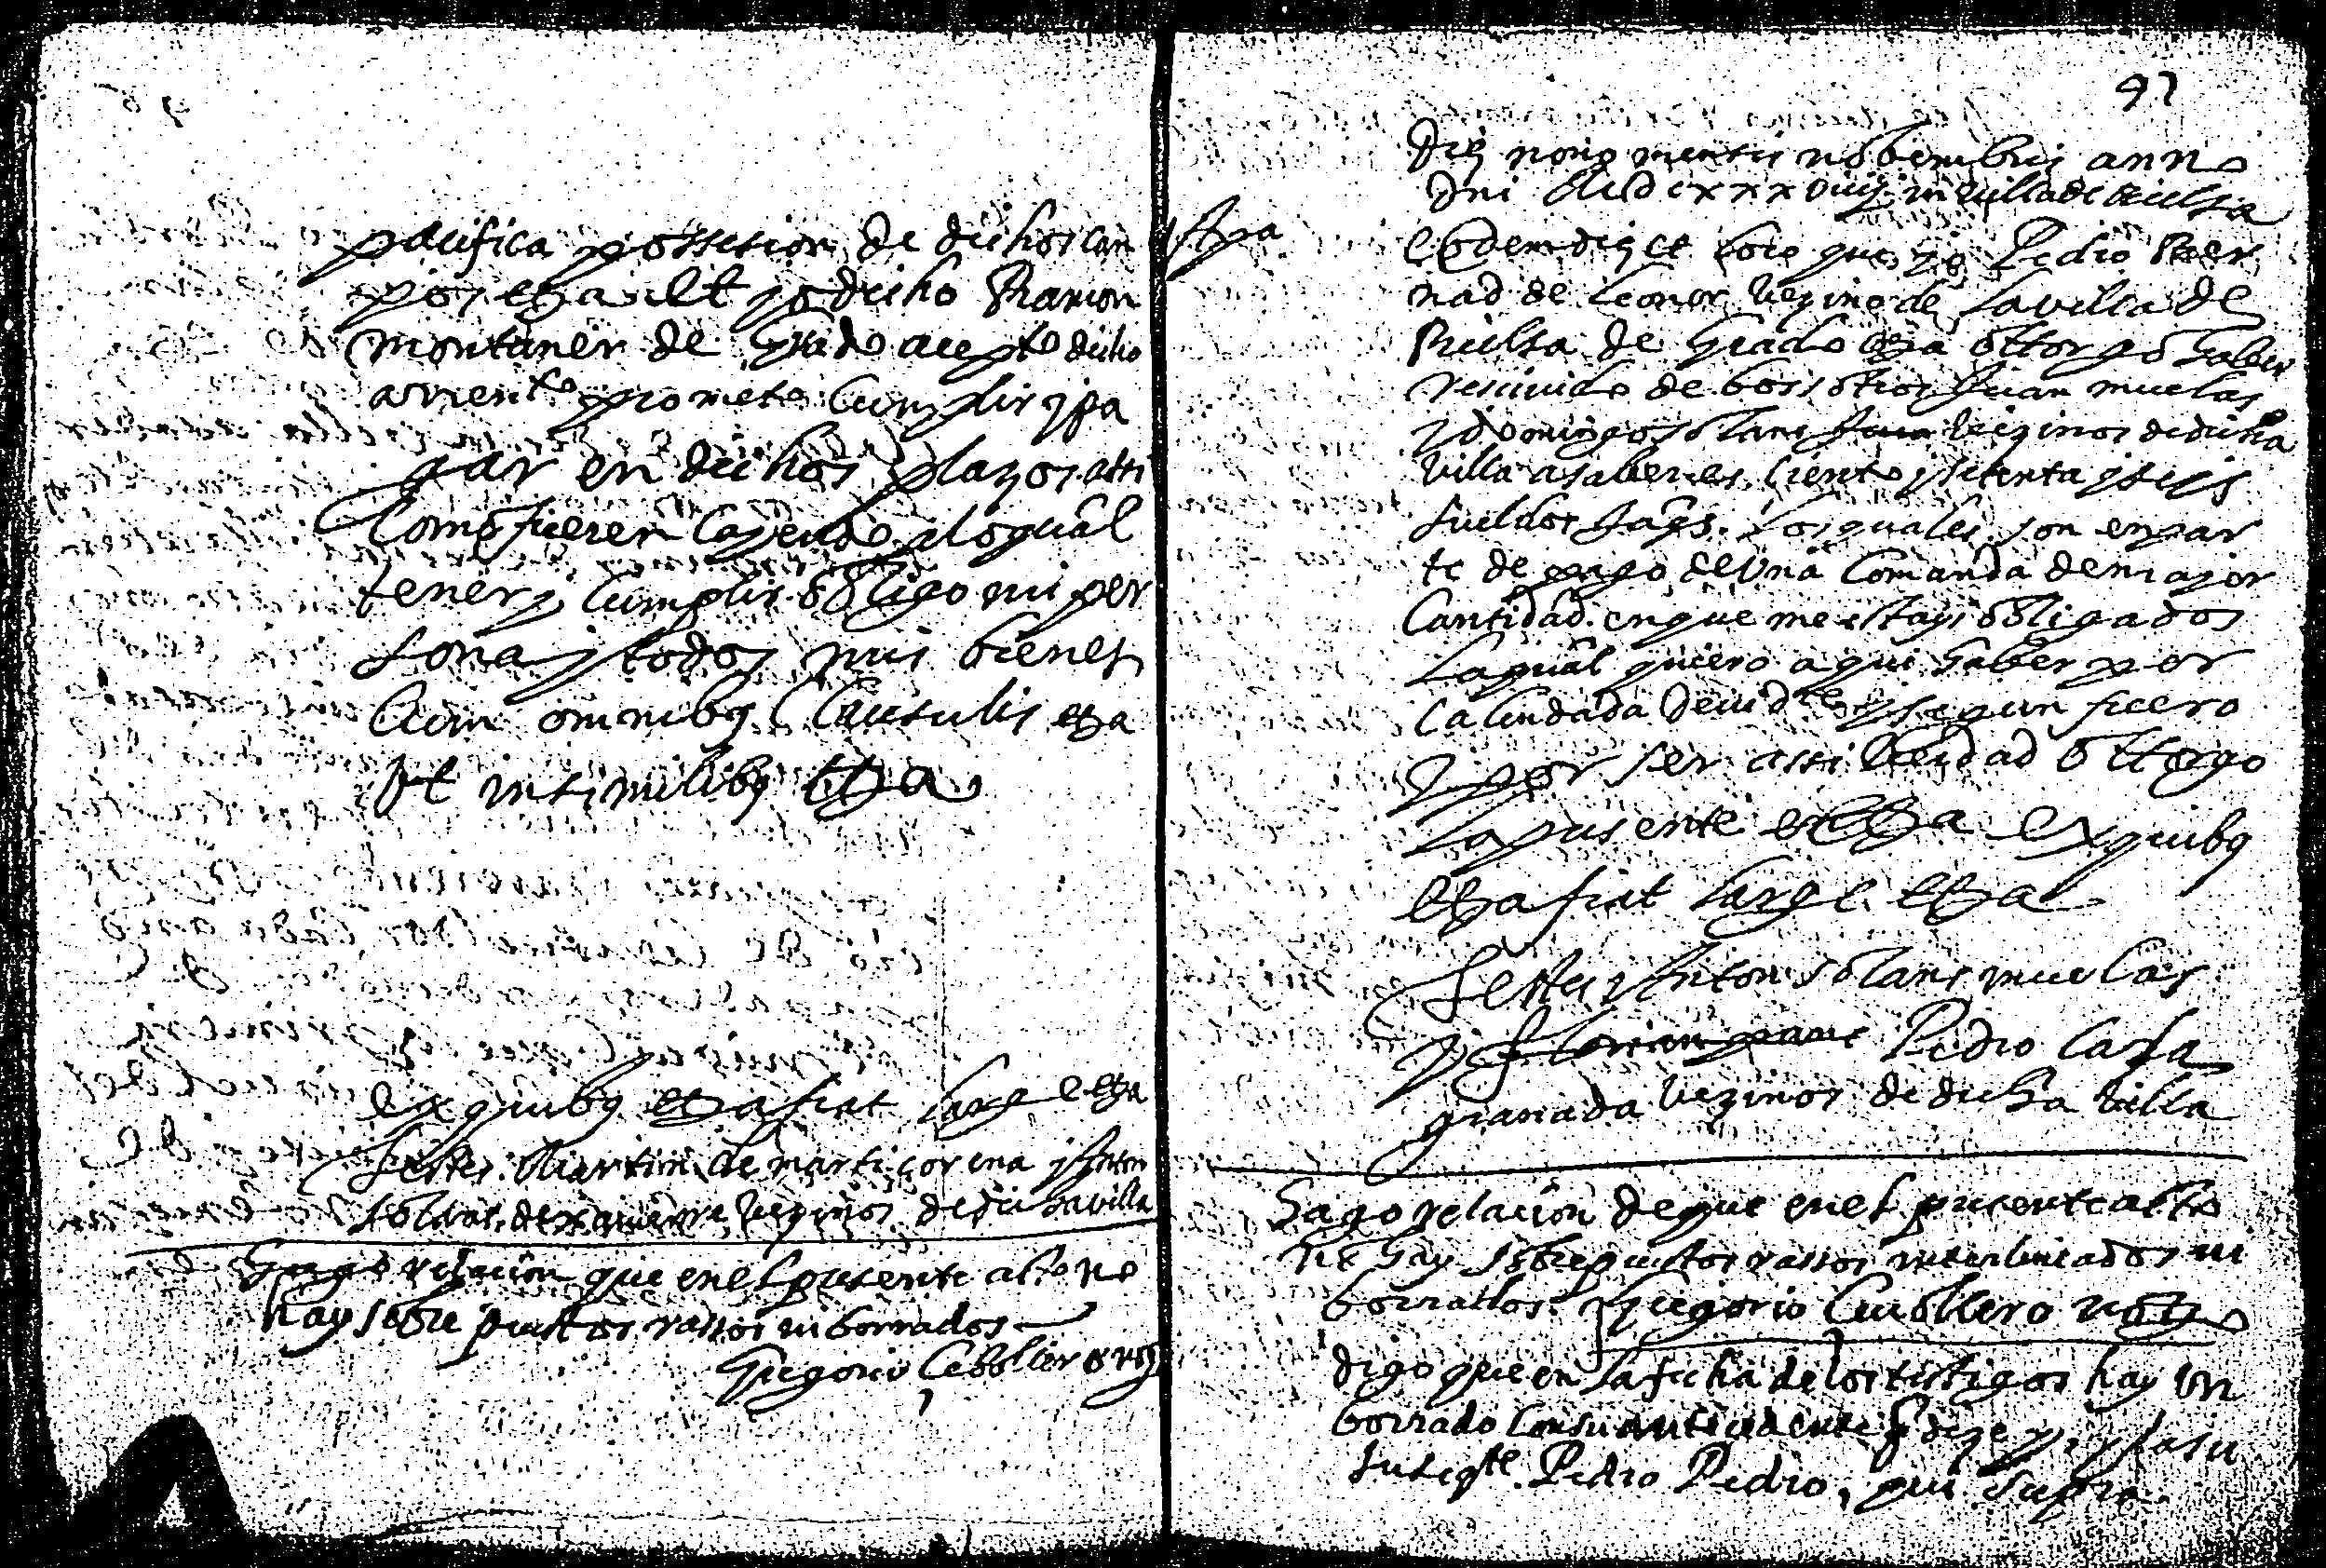 pacifica possesion de dichos cam
pos etza et yo dicho Ramon
montaner de Grado acepto dicho
arrento prometo Cumplir y pa
gar en dichos plazos assi
Como fueren Cayendo y lo qual
tener y Cumplir obligo mi per
sona y todos mis bienes
Cum omnibq Clausulis etza
Ut in similibq etza
ex quibq etza fiat large etza
Testes Martin de marticorena y Anton
Solanas vezinos de dicha villa
Hago relacion que en el presente acto no
hay sobre puestos rassos ni borrados
Gregorio Cebollero not
97
Die nono mensis nobembris anno
Dni in villa de Ricelsa
Apa
Eodem die et loco que yo Pedro Ber
nad de Leonor vezino de la villa de
Ricelsa de Grado etza ottorgo haber
rescivido de bossotros Juan muelas
y domingo solans vezinos de dicha
villa asaber es Ciento y setenta y seys
sueldos Jaqs. los quales son en par
te de pago de Una Comanda de mayor
Cantidad en que me estays obligados
La qual quiero aqui haber por
calendada devidte y segun fuero
y por ser assi verdad ottorgo
la presente etza ex quibq
etza fiat large etza
Testes Anton solans muelas
y Pedro Casa
granada vezinos de dicha villa
Hago relacion de que en el presente acto
no hay sobrepuestos rassos interlineados ni
borrados. Gregorio Cevollero not
digo que en la fecha de los testigos hay Un
borrado con su antecedente q dize y y la su
susiqte. Pedro Pedro, qui supra